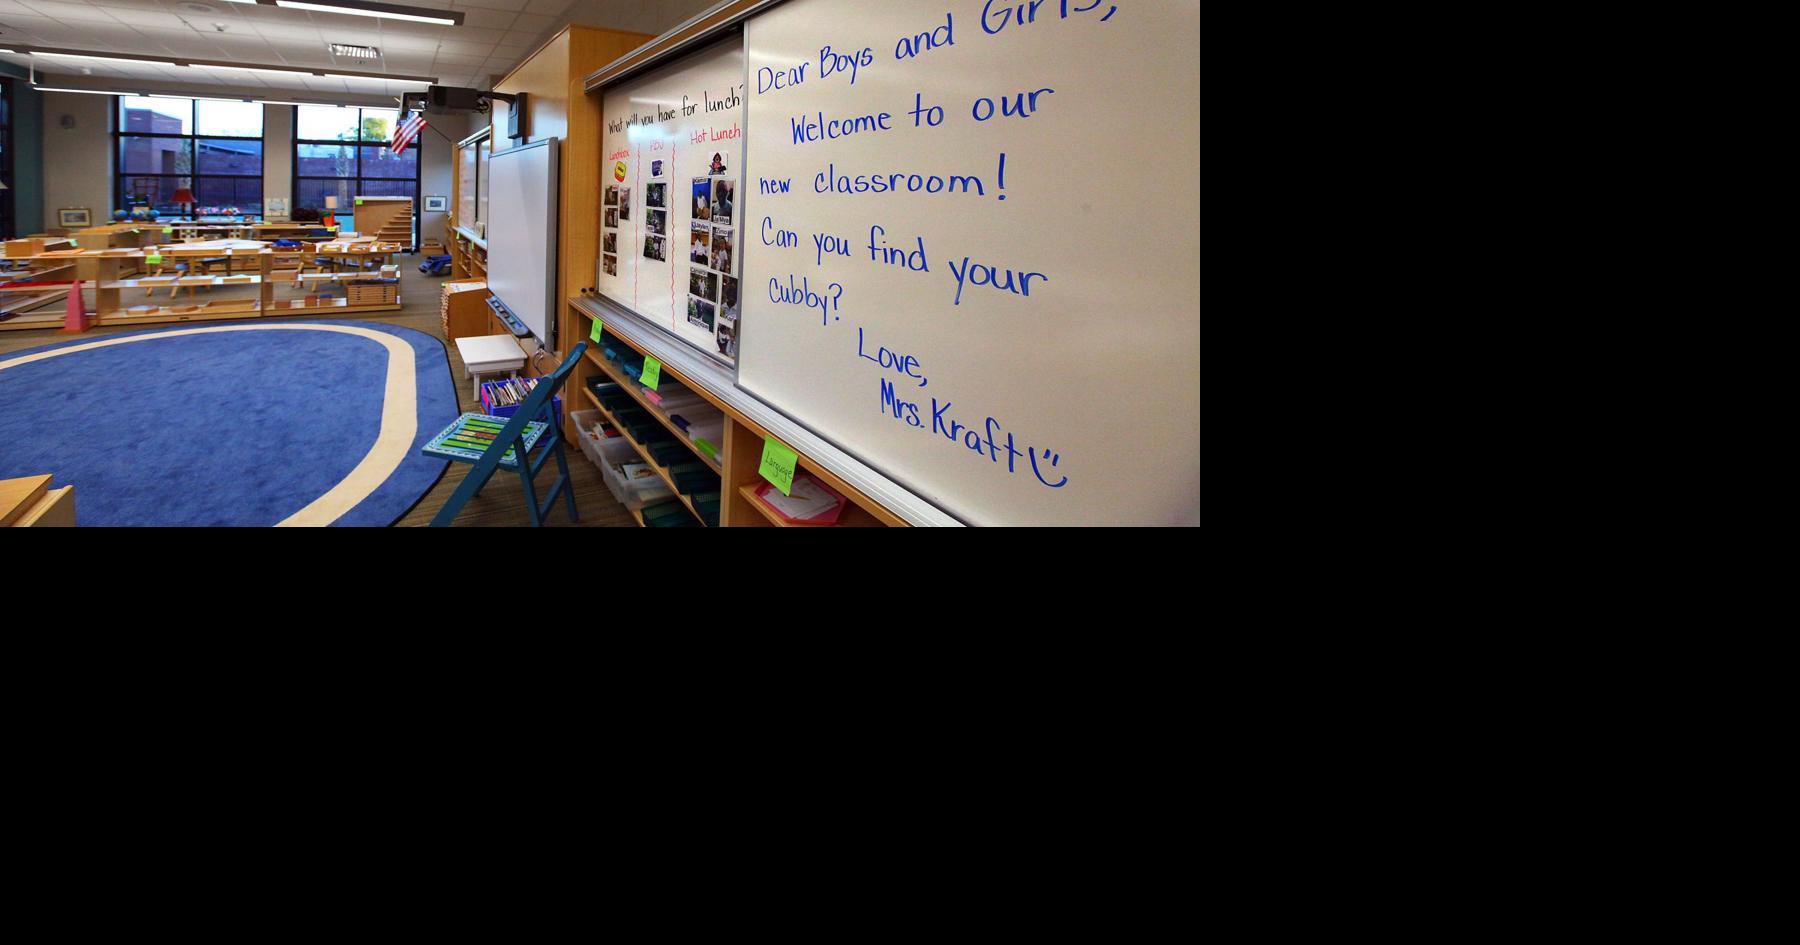 Dear Boys and Girls,
Welcome to our
new classroom!
Can you find your
Cubby?
Love,
Mrs. Kraft
What will you have for lunch?
Lunchbox
PBJ
Hot Lunch
Language